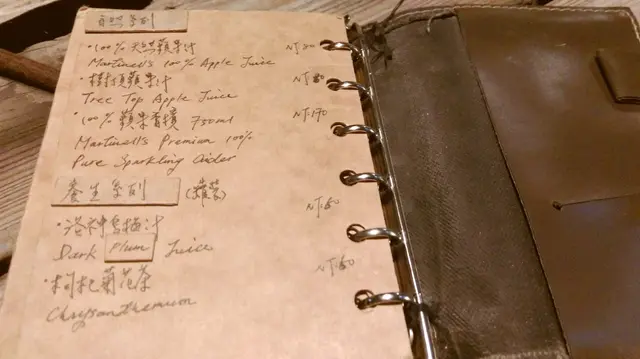 自然系列
·100%天然蘋果汁 NT:80
Martinell's 100% Apple Juice
·樹頂蘋果汁 NT:80
Tree Top Apple Juice
·100% 蘋果香檳 750ml NT:170
Martinell's Premium 100%
Pure Sparkling Cider
養生系列 (罐裝)
·洛神烏梅汁 NT:60
Dark Plum Juice
·枸杞菊花茶 NT:60
Chrysanthemum